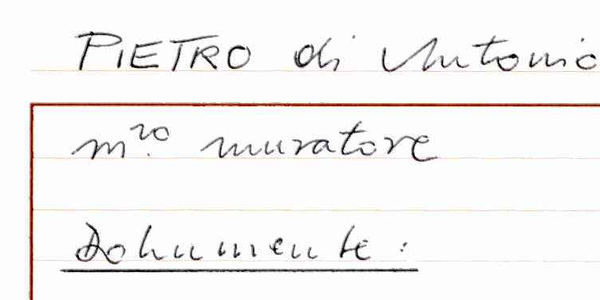 PIETRO di Antonio
m.ro muratore
Dokumente: